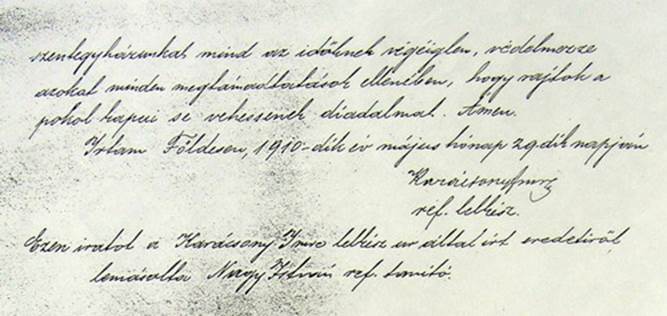 szentegyházunkat mind az időknek végéiglen, védelmezze
azokat minden megtámadtatások ellenében, hogy rajtok a
pokol kapui se vehessenek diadalmat. Ámen.
Irtam Földesen, 1910-dik év május hónap 29.dik napján
Karácsony Imre
ref. lelkész.
Ezen iratot a Karácsony Imre lelkész ur által irt eredetiről
lemásolta Nagy István ref. tanító.